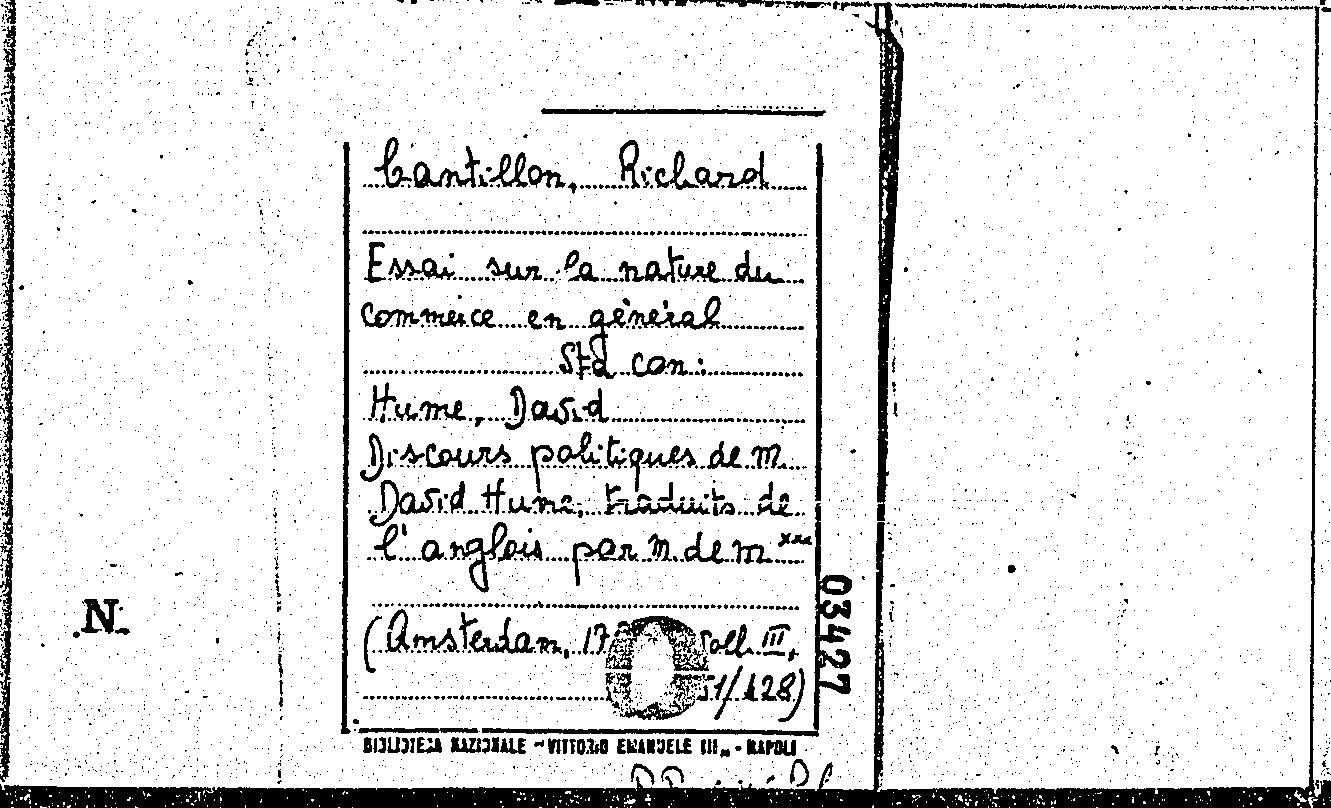 Cantillon, Richard
Essai sur la nature du
commerce en général
Std con:
Hume, David
Discours politiques de M.
David Hume, traduits de
l'anglois par M. de M xxx
(Amsterdam, III,
/128)
03427
N.
BIBLIOTECA NAZIONALE "VITTORIO EMANUELE III" - NAPOLI